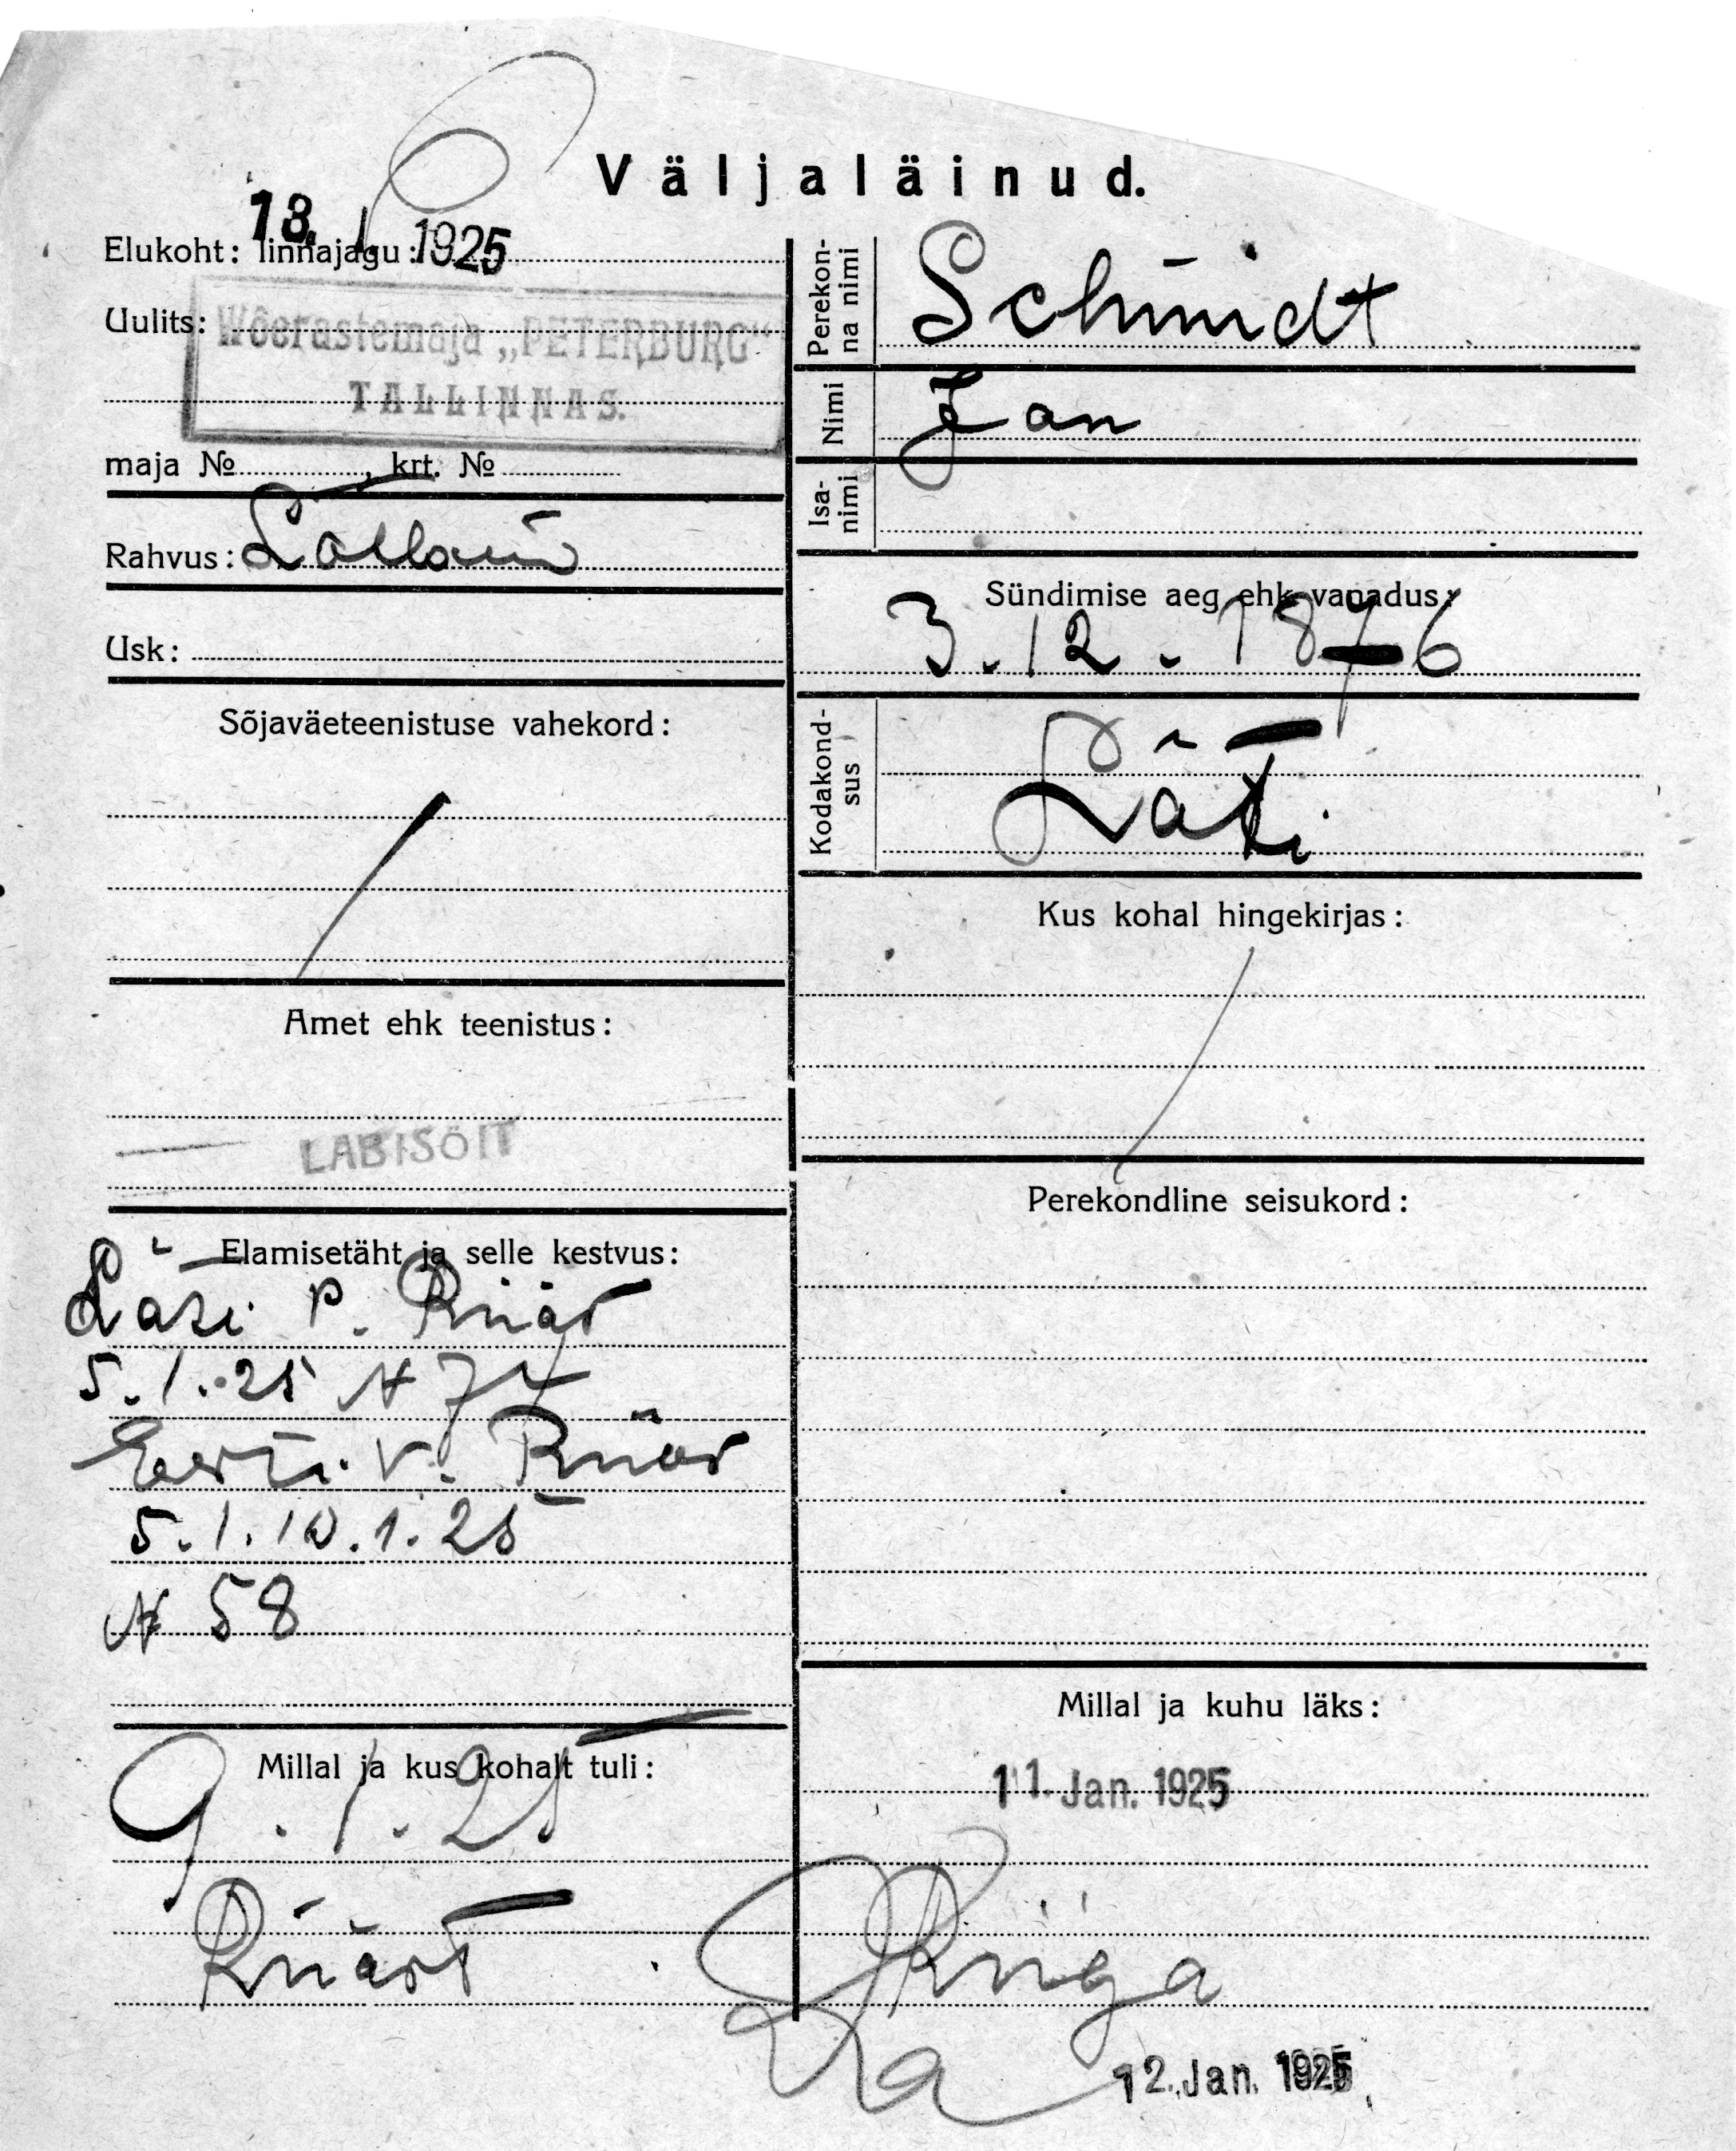 Väljaläinud.
13. 1. 1925
Elukoht: linnajagu:
Uulits:
Wõerastemaja „PETERBURG"
TALLINNAS.
maja № , krt. №
Rahvus:
Usk:
Sõjaväeteenistuse vahekord:
Amet ehk teenistus:
LÄBISÕIT
Elamisetäht ja selle kestvus:
Läti p. Riiast
5.1.25 №
Eesti v. Riias
5.1.10.1.25
№ 58
Millal ja kus kohalt tuli:
9.1.25
Riiast
Perekonna nimi
Schmidt
Nimi
Jan
Isanimi
Sündimise aeg ehk vanadus:
3.12.1876
Kodakondsus
Läti
Kus kohal hingekirjas:
Perekondline seisukord:
Millal ja kuhu läks:
11. Jan. 1925
Riiga
12. Jan. 1925